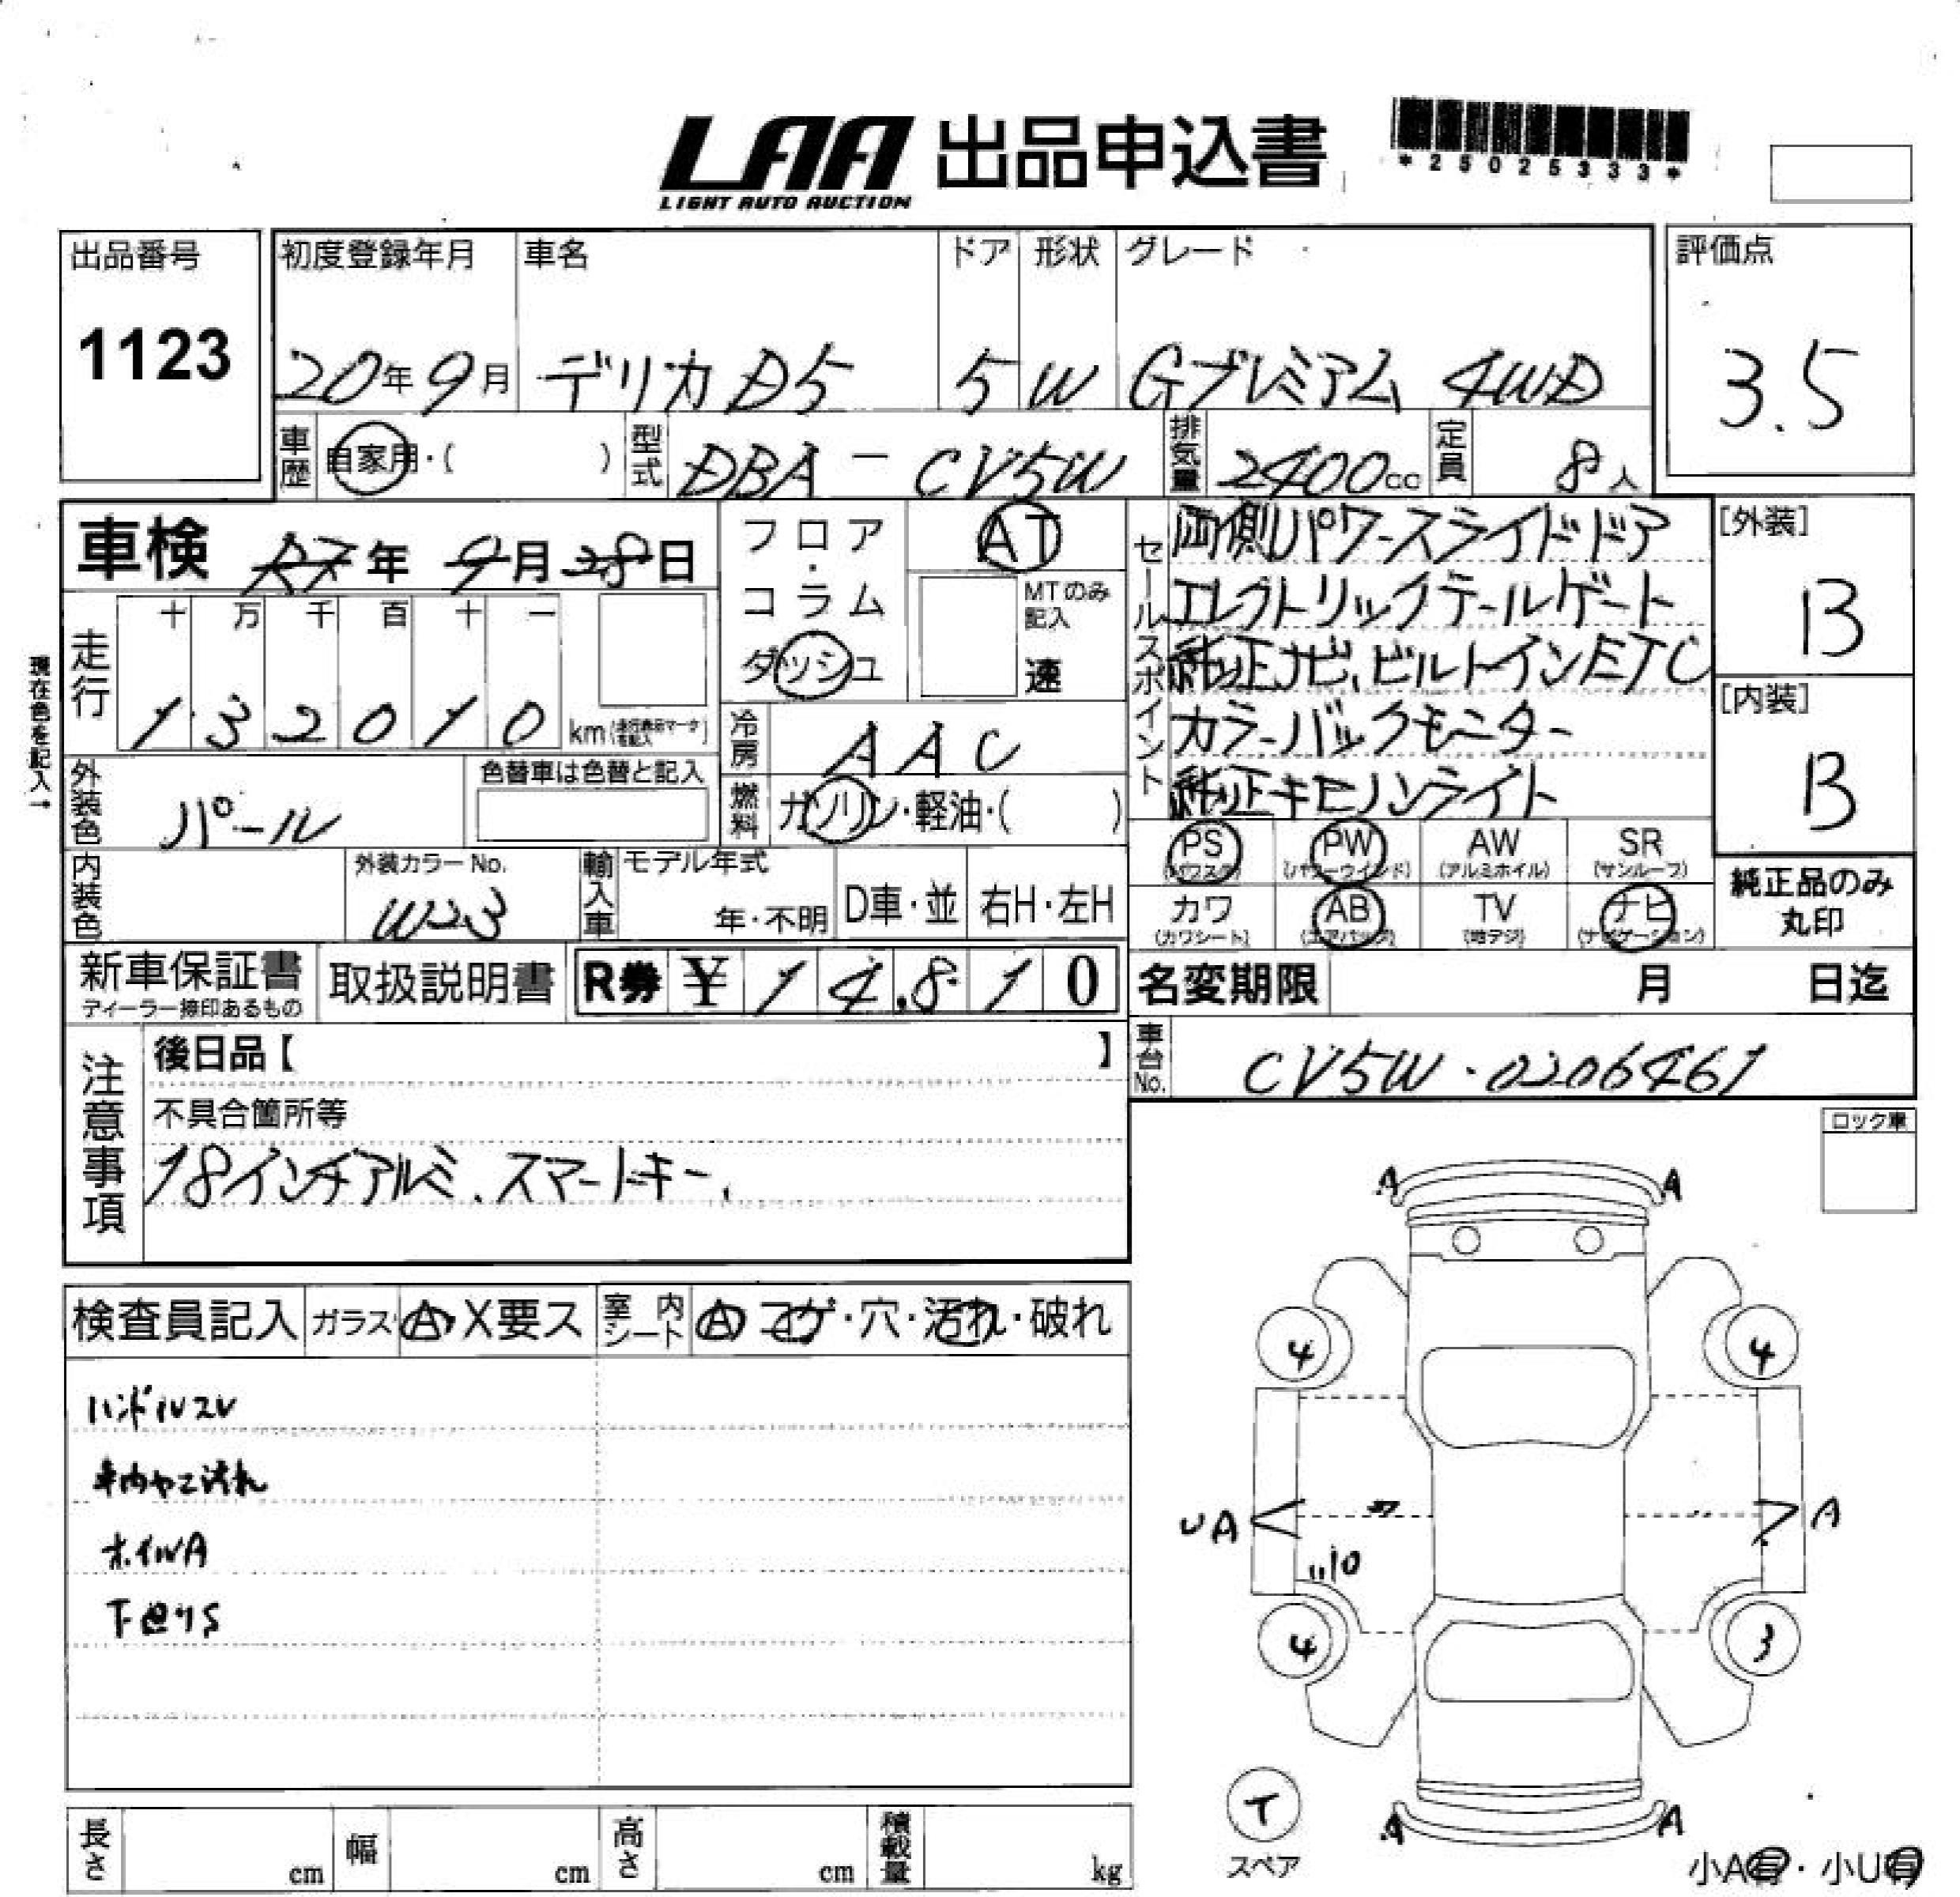 LAA 出品申込書
LIGHT AUTO AUCTION
*25025333*
出品番号
1123
初度登録年月 車名 ドア 形状 グレード
20年9月 デリカD5 5 W Gプレミアム 4WD
評価点
3.5
車歴 自家用・( ) 型式 DBA-CV5W 排気量 2400cc 定員 8人
車検 R7年 9月 28日
フロア・コラム
ダッシュ
AT
MTのみ記入
速
セールスポイント
両側パワースライドドア
エレクトリックテールゲート
純正ナビ、ビルトインETC
カラーバックモニター
純正キセノンライト
[外装]
B
[内装]
B
現在色を記入→
走行
十 万 千 百 十 一
1 3 2 0 1 0 km(走行表示マークを記入)
冷房 AAC
燃料 ガソリン・軽油・( )
外装色 パール
色替車は色替と記入
PS PW AW SR
(パワステ) (パワーウインド) (アルミホイル) (サンルーフ)
カワ AB TV ナビ
(カワシート) (エアバック) (地デジ) (ナビゲーション)
純正品のみ
丸印
内装色
外装カラーNo.
W23
輸入車 モデル年式
年・不明 D車・並 右H・左H
新車保証書
ディーラー捺印あるもの
取扱説明書
R券 ¥ 1 4,8 1 0
名変期限 月 日迄
車台No. CV5W-0206461
注意事項
後日品【 】
不具合箇所等
18インチアルミ、スマートキー、
ロック車
検査員記入 ガラス A・X要ス 室内シート A コゲ・穴・汚れ・破れ
ハンドルスレ
車内ヤニ汚れ
ホイルA
下回りS
A A
4 4
UA A
10
4 3
T
スペア
A A
長さ cm 幅 cm 高さ cm 積載量 kg
小A有・小U有